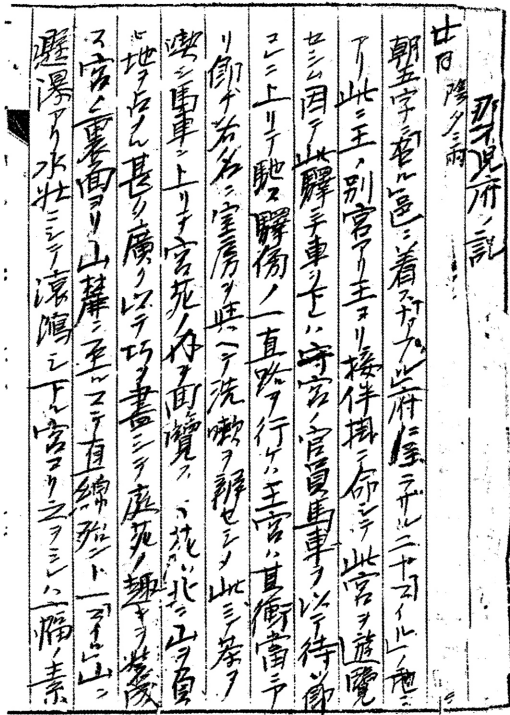 那不児府ノ記
廿日 陰夕ニ雨
朝五字「カゼルタ」邑ニ着ス「ナアプル」府ニ至ラザルニ十「マイル」ノ地ニ
アリ此ニ王ノ別宮アリ王ヨリ接伴掛ニ命シテ此宮ヲ遊覧
セシム因テ此驛ニテ車ヲ下レハ守宮ノ官員馬車ヲ以テ待ツ即
コレニ上リテ馳ス驛傍ノ一直路ヲ行ケハ王宮ハ其衝當ニア
リ即チ各名ニ室房ヲ与ヘテ洗嗽ヲ辨セシメ此ニテ茶ヲ
喫シ馬車ニ上リテ宮苑ノ内ヲ回覧ス此苑ハ北ニ山ヲ負
ヒ地ヲ占ムル甚タ廣ク以テ巧ヲ盡シテ庭苑ノ趣キヲ装成
ス宮ノ裏面ヨリ山麓ニ至ルマテ直線殆ント一「マイル」山ニ
懸瀑アリ水壮ニシテ滾瀉シ下ル宮ヨリ之ヲミレハ一幅ノ素